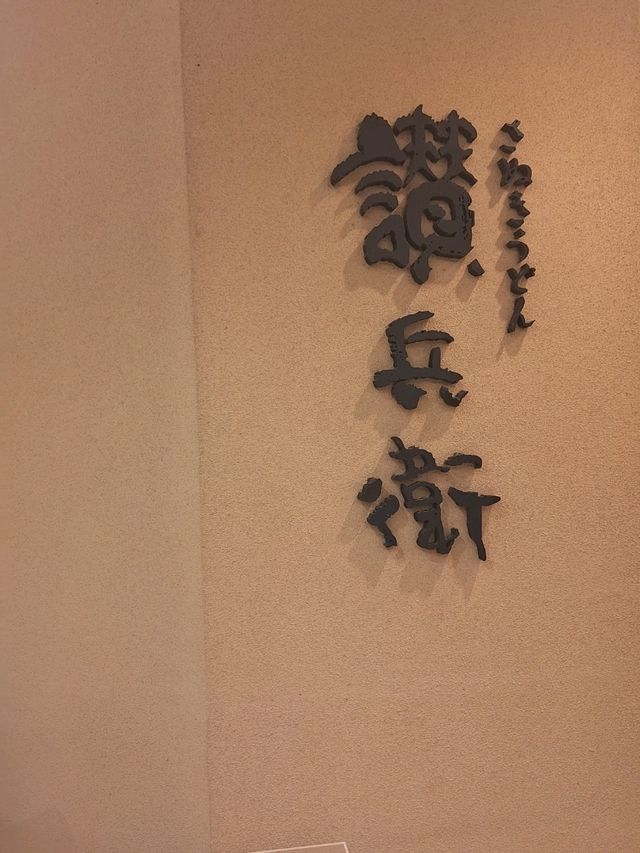 さぬきうどん
讃兵衛